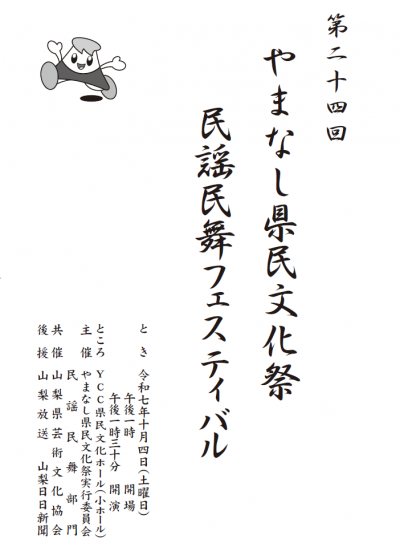 第二十四回
やまなし県民文化祭
民謡民舞フェスティバル
とき 令和七年十月四日(土曜日)
午後一時 開場
午後一時三十分 開演
ところ YCC県民文化ホール(小ホール)
主催 やまなし県民文化祭実行委員会
民謡民舞部門
共催 山梨県芸術文化協会
後援 山梨放送 山梨日日新聞